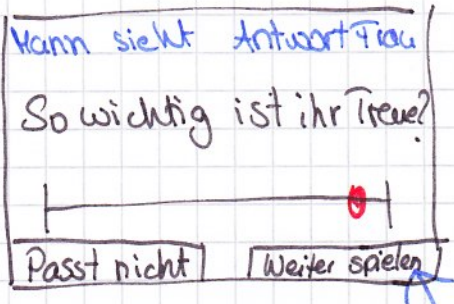 Mann sieht Antwort Frau
So wichtig ist ihr Treue?
Passt nicht
Weiter spielen